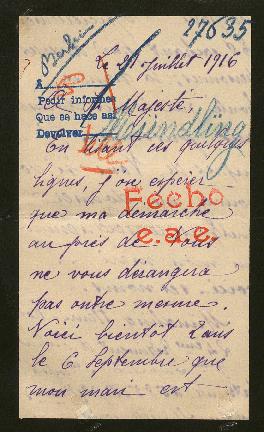 27635
Berlin
Le 21 Juillet 1916
A
Sa Majesté,
Pedir informes
Que se hace así
Devolver
En lisant ces quelques
lignes, j'ose espérer
que ma démarche
Hecho
au près de Vous
e.a.e.
ne vous dérangera
pas outre mesure.
Voici bientôt 2 ans
le 6 Septembre que
mon mari est